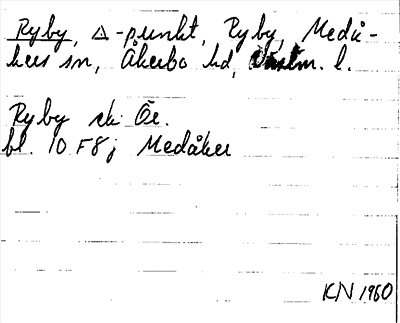 Ryby, △-punkt, Ryby, Medå-
kers sn, Åkerbo hd, Västm. l.
Ryby ek. Ör.
bl. 10 F 8 j Medåker
KN 1960